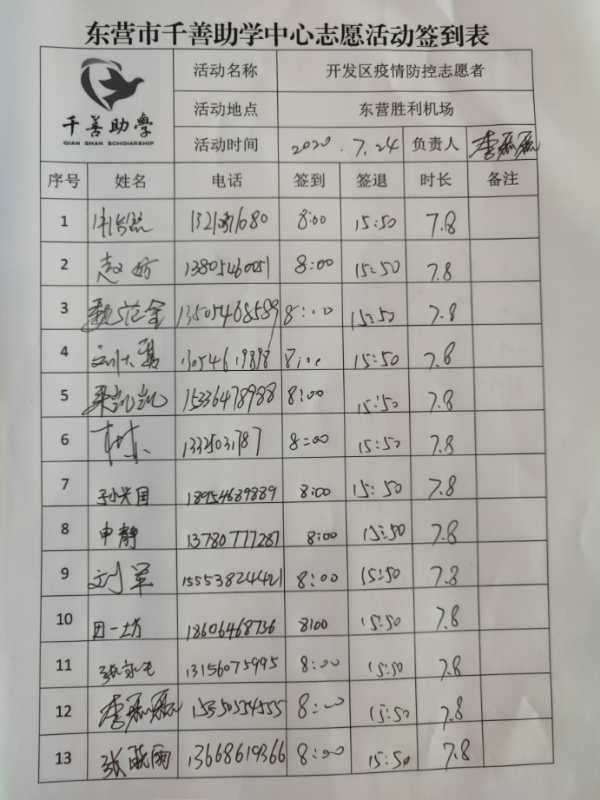 东营市千善助学中心志愿活动签到表
千善助学
QIAN SHAN SCHOLARSHIP
活动名称 开发区疫情防控志愿者
活动地点 东营胜利机场
活动时间 2020.7.24 负责人
序号 姓名 电话 签到 签退 时长 备注
1 8:00 15:50 7.8
2 13805460051 8:00 15:50 7.8
3 13505468589 8:00 15:50 7.8
4 8:00 15:50 7.8
5 梁凯凯 15336478988 8:00 15:50 7.8
6 8:00 15:50 7.8
7 孙兴国 18954689889 8:00 15:50 7.8
8 申静 13780777287 8:00 15:50 7.8
9 刘军 15553824421 8:00 15:50 7.8
10 18606468736 8:00 15:50 7.8
11 13156075995 8:00 15:50 7.8
12 8:00 15:50 7.8
13 13668619366 8:00 15:50 7.8